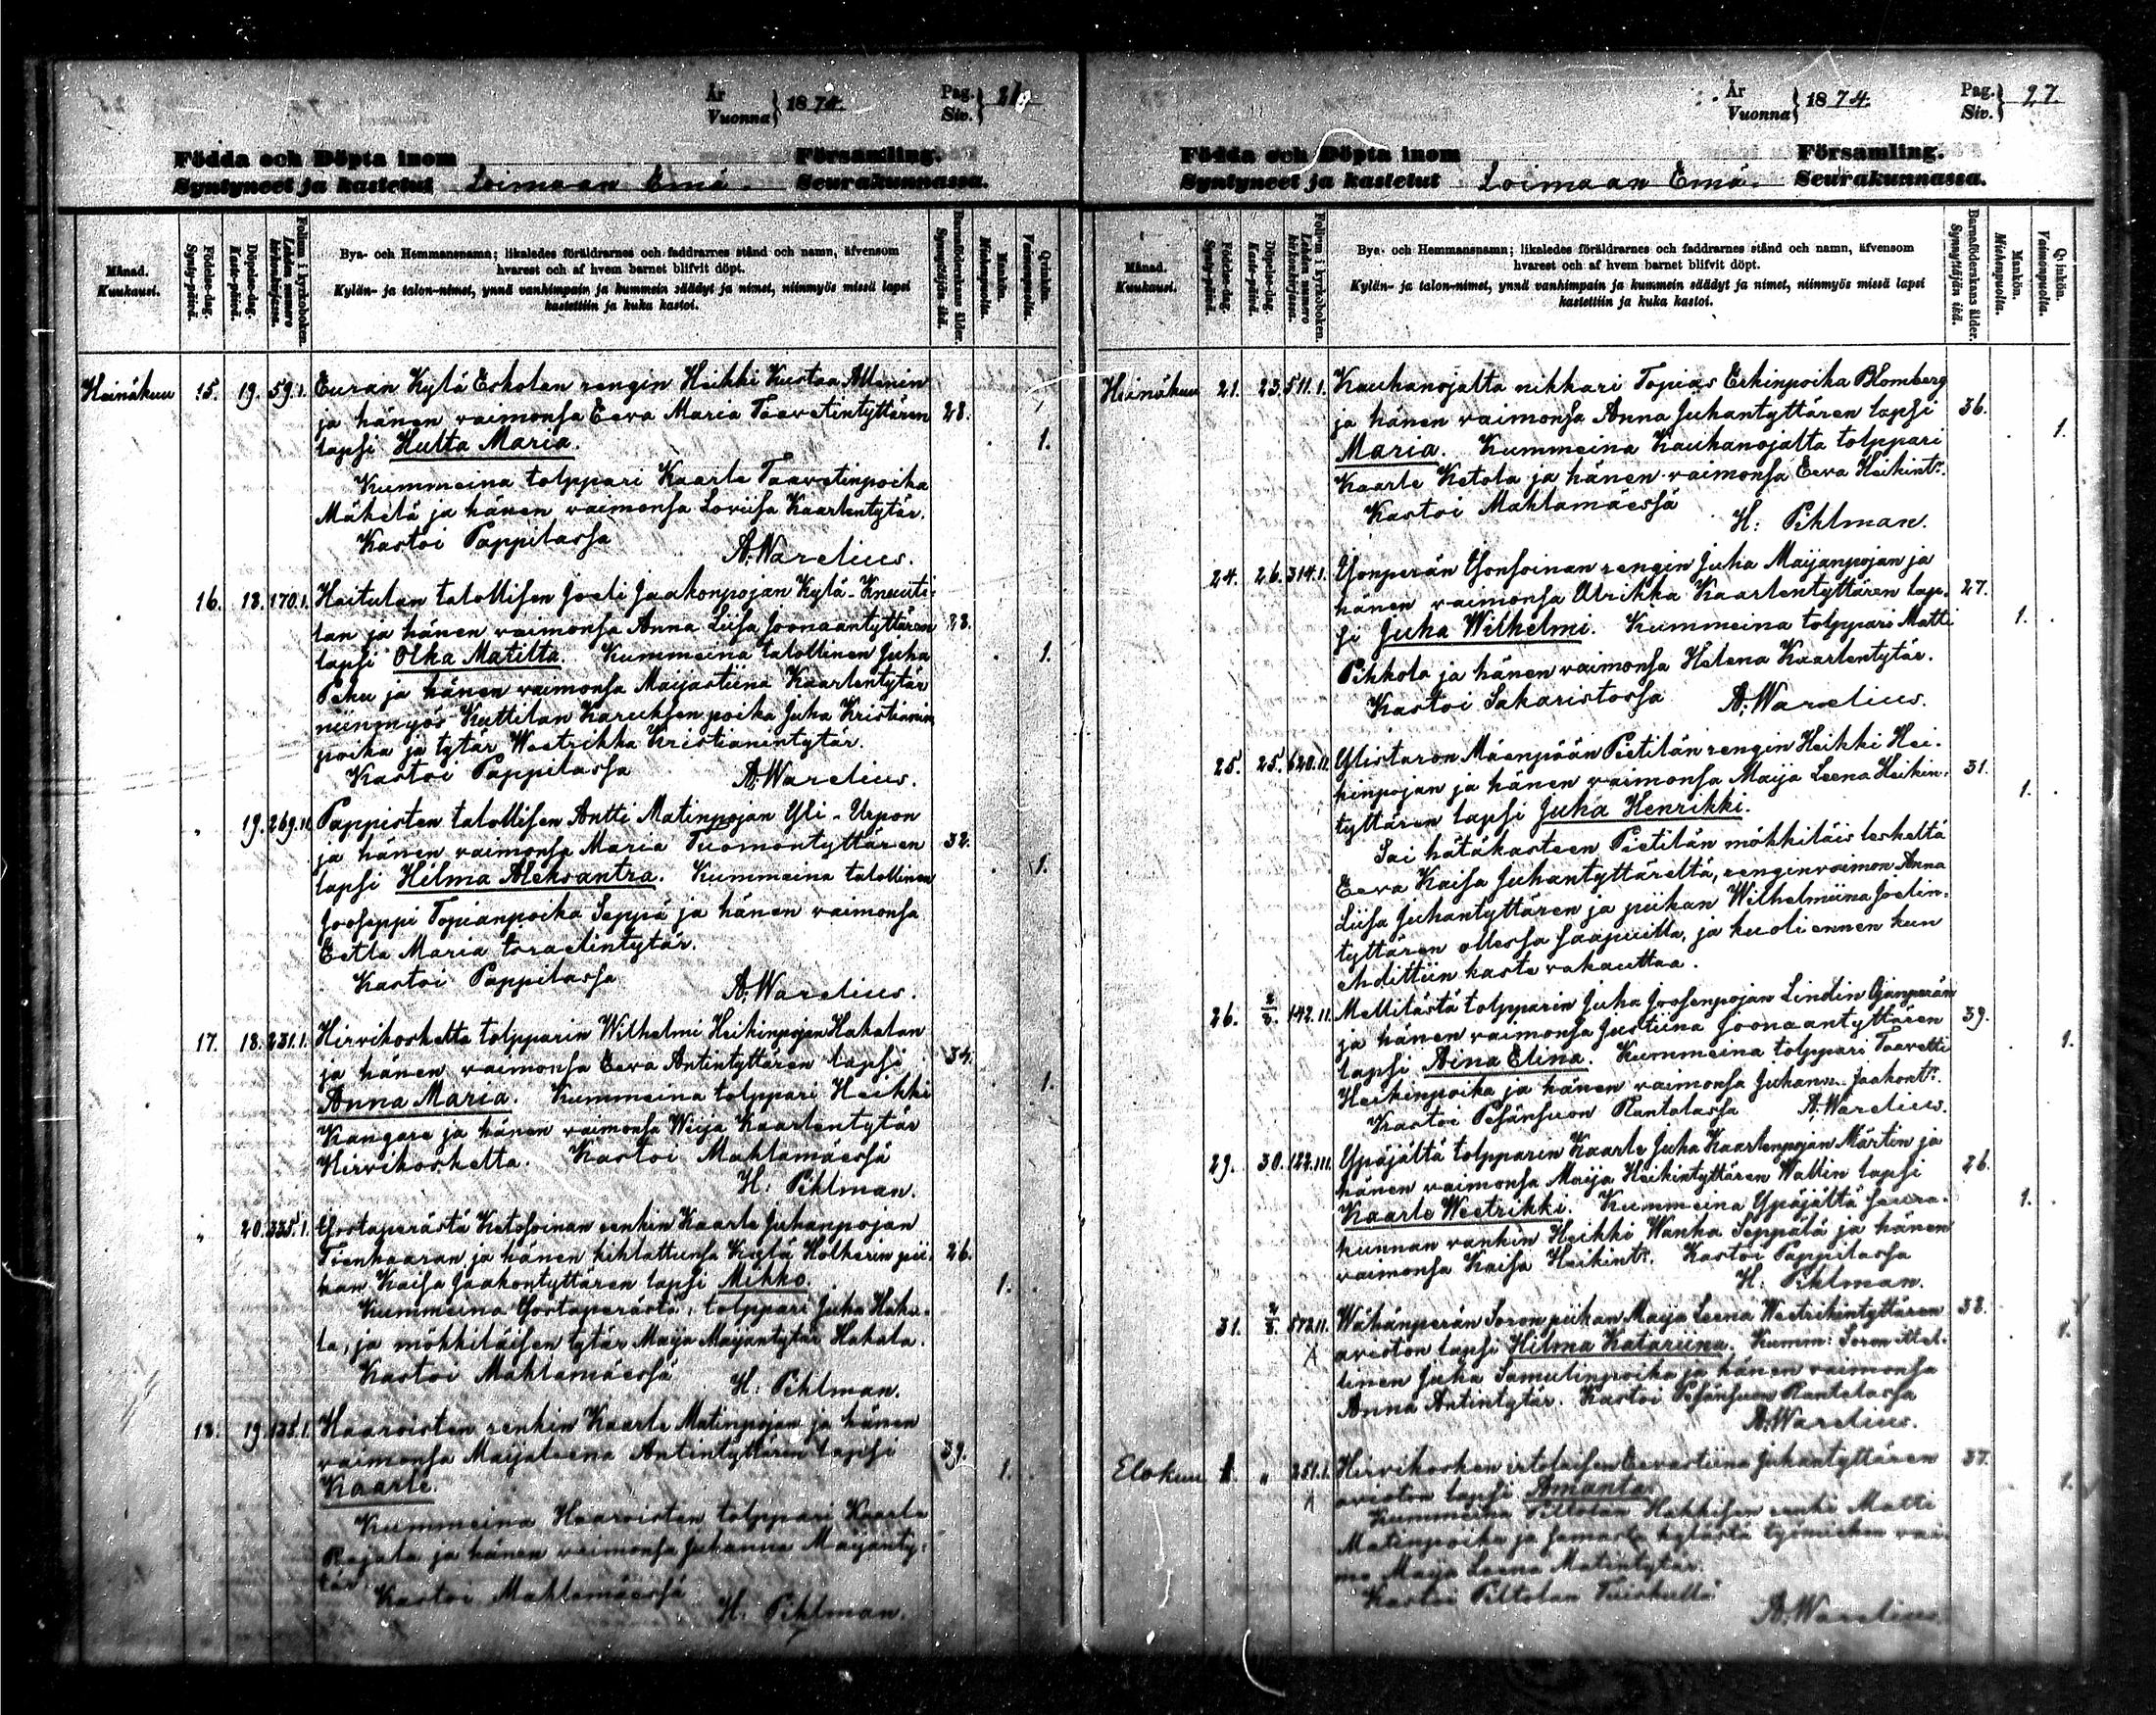 År
Vuonna } 1874.
Pag.
Siv. } 26.
Födda och Döpta inom Församling.
Syntyneet ja kastetut Loimaan Emä. Seurakunnassa.
Månad.
Kuukausi.
Födelse-dag.
Synty-päivä.
Döpelse-dag.
Kaste-päivä.
Folium i kyrkoboken.
Lehden numero kirkonkirjassa.
Bya- och Hemmansnamn; likaledes föräldrarnes och faddrarnes stånd och namn, äfvensom
hvarest och af hvem barnet blifvit döpt.
Kylän- ja talon-nimet, ynnä vanhimpain ja kummein säädyt ja nimet, niinmyös missä lapsi
kastettiin ja kuka kastoi.
Barnaföderskans ålder.
Synnyttäjän ikä.
Mankön.
Miehenpuolta.
Qvinkön.
Vaimonpuolta.
Heinäkuu 15. 19. 59.I. Euran Kylä Eskolan rengin Heikki Kustaa Allenin
ja hänen vaimonsa Eeva Maria Taavetintyttären 28.
lapsi Hulta Maria. 1.
Kummeina tolppari Kaarle Taavetinpoika
Mäkelä ja hänen vaimonsa Loviisa Kaarlentytär.
Kastoi Pappilassa
A. Warelius.
16. 18. 170.I. Haitulan talollisen Joeli Jaakonpojan Kylä-Knuuti-
lan ja hänen vaimonsa Anna Liisa Joonaantyttären 28.
lapsi Olka Matilta. Kummeina talollinen Juha 1.
Peku ja hänen vaimonsa Maijastiina Kaarlentytär
niinmyös Kuttilan Karuksen poika Juha Kristianin
poika ja tytär Weetrikka Kristianintytär.
Kastoi Pappilassa A. Warelius.
" 19. 269.II. Pappisten talollisen Antti Matinpojan Yli-Urpon
ja hänen vaimonsa Maria Tuomontyttären 32.
lapsi Hilma Aleksantra. Kummeina talollinen 1.
Jooseppi Topianpoika Seppä ja hänen vaimonsa
Eetla Maria Israelintytär.
Kastoi Pappilassa
A. Warelius.
17. 18. 231.I. Hirvikoskelta tolpparin Wilhelmi Heikinpojan Hakalan
ja hänen vaimonsa Eeva Antintyttären lapsi 34.
Anna Maria. Kummeina tolppari Heikki 1.
Kangare ja hänen vaimonsa Wiija Kaarlentytär
Hirvikoskelta. Kastoi Mahlamäessä
H: Pihlman.
" 20. 335.I. Ylostaperästä Ketosoinan renkin Kaarle Juhanpojan
Tienhaaran ja hänen kihlattunsa Kylä Holkerin pii- 26.
kan Kaisa Jaakontyttären lapsi Mikko. 1.
Kummeina Ylostaperästä, tolppari Juha Haka-
la, ja mökkiläisen tytär Maija Maijantytär Hakala.
Kastoi Mahlamäessä
H: Pihlman.
18. 19. 135.I. Haaroisten renkin Kaarle Matinpojan ja hänen
vaimonsa Maijaleena Antintyttären lapsi 39.
Kaarle. 1.
Kummeina Haaroisten tolppari Kaarle
Rajala ja hänen vaimonsa Juhanna Maijanty-
tär. Kastoi Mahlamäessä
H: Pihlman.
År
Vuonna } 1874.
Pag.
Siv. } 27.
Födda och Döpta inom Församling.
Syntyneet ja kastetut Loimaan Emä. Seurakunnassa.
Månad.
Kuukausi.
Födelse-dag.
Synty-päivä.
Döpelse-dag.
Kaste-päivä.
Folium i kyrkoboken.
Lehden numero kirkonkirjassa.
Bya- och Hemmansnamn; likaledes föräldrarnes och faddrarnes stånd och namn, äfvensom
hvarest och af hvem barnet blifvit döpt.
Kylän- ja talon-nimet, ynnä vanhimpain ja kummein säädyt ja nimet, niinmyös missä lapsi
kastettiin ja kuka kastoi.
Barnaföderskans ålder.
Synnyttäjän ikä.
Mankön.
Miehenpuolta.
Qvinkön.
Vaimonpuolta.
Heinäkuu 21. 23. 511.I. Kauhanojalta nikkari Topias Erkinpoika Blomberg
ja hänen vaimonsa Anna Juhantyttären lapsi 36.
Maria. Kummeina Kauhanojalta tolppari 1.
Kaarle Ketola ja hänen vaimonsa Eeva Heikint:r
Kastoi Mahlamäessä
H: Pihlman.
24. 26. 314.I. Ylonperän Ylonsoinan rengin Juha Maijanpojan ja
hänen vaimonsa Ulrikka Kaarlentyttären lap- 27.
si Juha Wilhelmi. Kummeina tolppari Matti 1.
Pihkola ja hänen vaimonsa Helena Kaarlentytär.
Kastoi Sakaristossa A. Warelius.
25. 25. 620.II. Ylistaron Mäenpään Pietilän rengin Heikki Hei-
kinpojan ja hänen vaimonsa Maija Leena Heikin- 31.
tyttären lapsi Juha Henrikki. 1.
Sai hätäkasteen Pietilän mökkiläis leskeltä
Eeva Kaisa Juhantyttäreltä, renginvaimon Anna
Liisa Juhantyttären ja piikan Wilhelmiina Joelin-
tyttären ollessa saapuilla, ja kuoli ennen kun
ehdittiin kaste vakauttaa.
26. 2/8. 142.II. Mellilästä tolpparin Juha Joosenpojan Lindin Ojanperän
ja hänen vaimonsa Justiina Joonaantyttären 39.
lapsi Aina Elina. Kummeina tolppari Taavetti 1.
Heikinpoika ja hänen vaimonsa Juhanna Jaakont:r
Kastoi Pesänsuon Rantalassa A. Warelius.
29. 30. 122.III. Ypäjältä tolpparin Kaarle Juha Kaarlenpojan Märtin ja
hänen vaimonsa Maija Heikintyttären Wallin lapsi 26.
Kaarle Weetrikki. Kummeina Ypäjältä seura- 1.
kunnan vankin Heikki Wanha Seppälä ja hänen
vaimonsa Kaisa Heikint:r Kastoi Pappilassa
H: Pihlman.
31. 2/8. 572.II. Wähänperän Soron piikan Maija Leena Weetrikintyttären 38.
avioton lapsi Hilma Katariina. Kumm: Soron ittel- 1.
linen Juha Samulinpoika ja hänen vaimonsa
Anna Antintytär. Kastoi Pesänsuon Rantalassa
A. Warelius.
Elokuu 1. " 251.I. Hirvikosken irtolaisen Eevastiina Juhantyttären 37.
avioton lapsi Amanta. 1.
Kummeina Piltolan Hakkisen renki Matti
Matinpoika ja samasta kylästä työmiehen vai-
mo Maija Leena Matintytär.
Kastoi Piltolan Tuiskulla
A. Warelius.